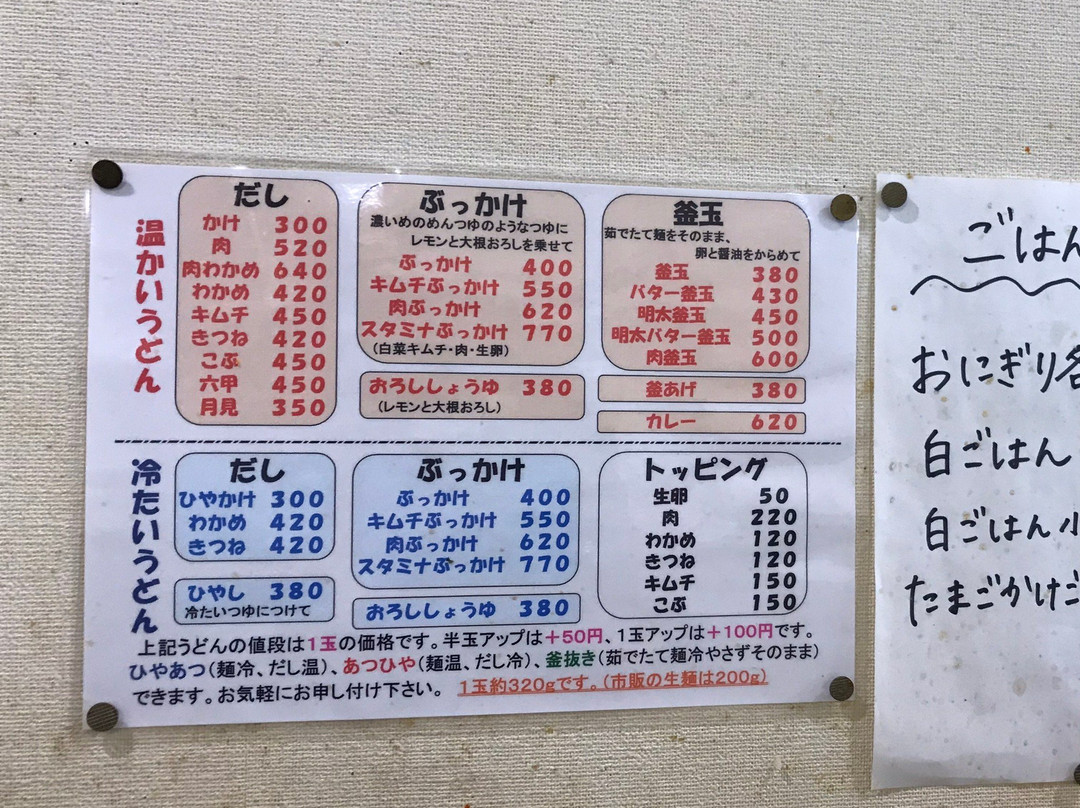 温かいうどん
だし
かけ 300
肉 520
肉わかめ 640
わかめ 420
キムチ 450
きつね 420
こぶ 450
六甲 450
月見 350
ぶっかけ
濃いめのめんつゆのようなつゆに
レモンと大根おろしを乗せて
ぶっかけ 400
キムチぶっかけ 550
肉ぶっかけ 620
スタミナぶっかけ 770
(白菜キムチ・肉・生卵)
おろししょうゆ 380
(レモンと大根おろし)
釜玉
茹でたて麺をそのまま、
卵と醤油をからめて
釜玉 380
バター釜玉 430
明太釜玉 450
明太バター釜玉 500
肉釜玉 600
釜あげ 380
カレー 620
冷たいうどん
だし
ひやかけ 300
わかめ 420
きつね 420
ひやし 380
冷たいつゆにつけて
ぶっかけ
ぶっかけ 400
キムチぶっかけ 550
肉ぶっかけ 620
スタミナぶっかけ 770
おろししょうゆ 380
トッピング
生卵 50
肉 220
わかめ 120
きつね 120
キムチ 150
こぶ 150
上記うどんの値段は1玉の価格です。半玉アップは+50円、1玉アップは+100円です。
ひやあつ(麺冷、だし温)、あつひや(麺温、だし冷)、釜抜き(茹でたて麺冷やさずそのまま)
できます。お気軽にお申し付け下さい。 1玉約320gです。(市販の生麺は200g)
ごはん
おにぎり各
白ごはん
白ごはん小
たまごかけご